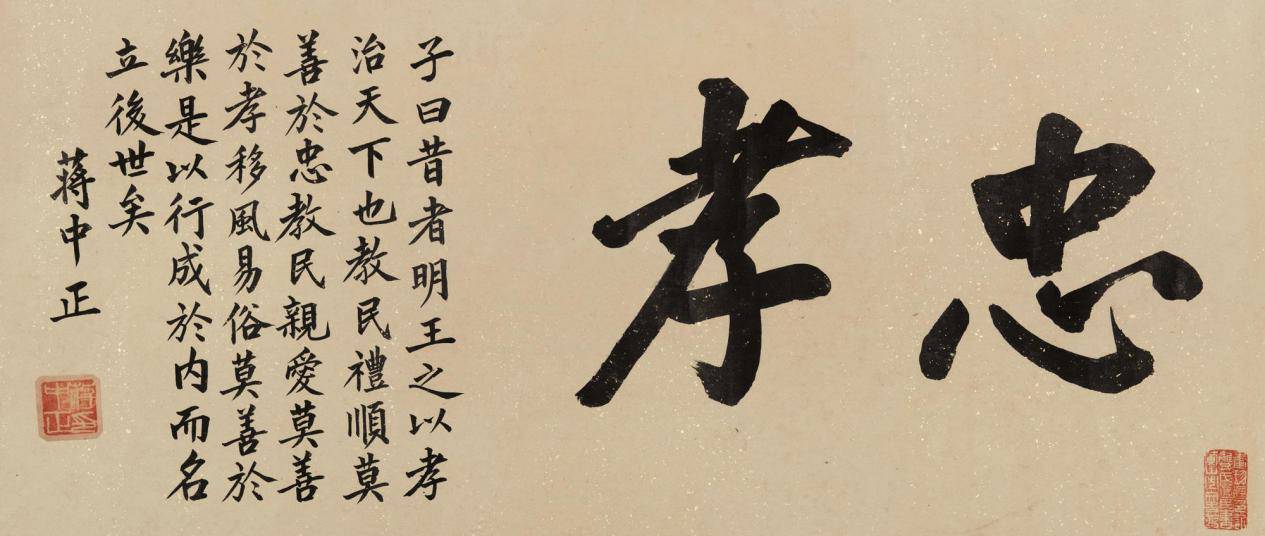 忠孝
子曰昔者明王之以孝
治天下也教民禮順莫
善於忠教民親愛莫善
於孝移風易俗莫善於
樂是以行成於内而名
立後世矣
蔣中正
蔣中正印